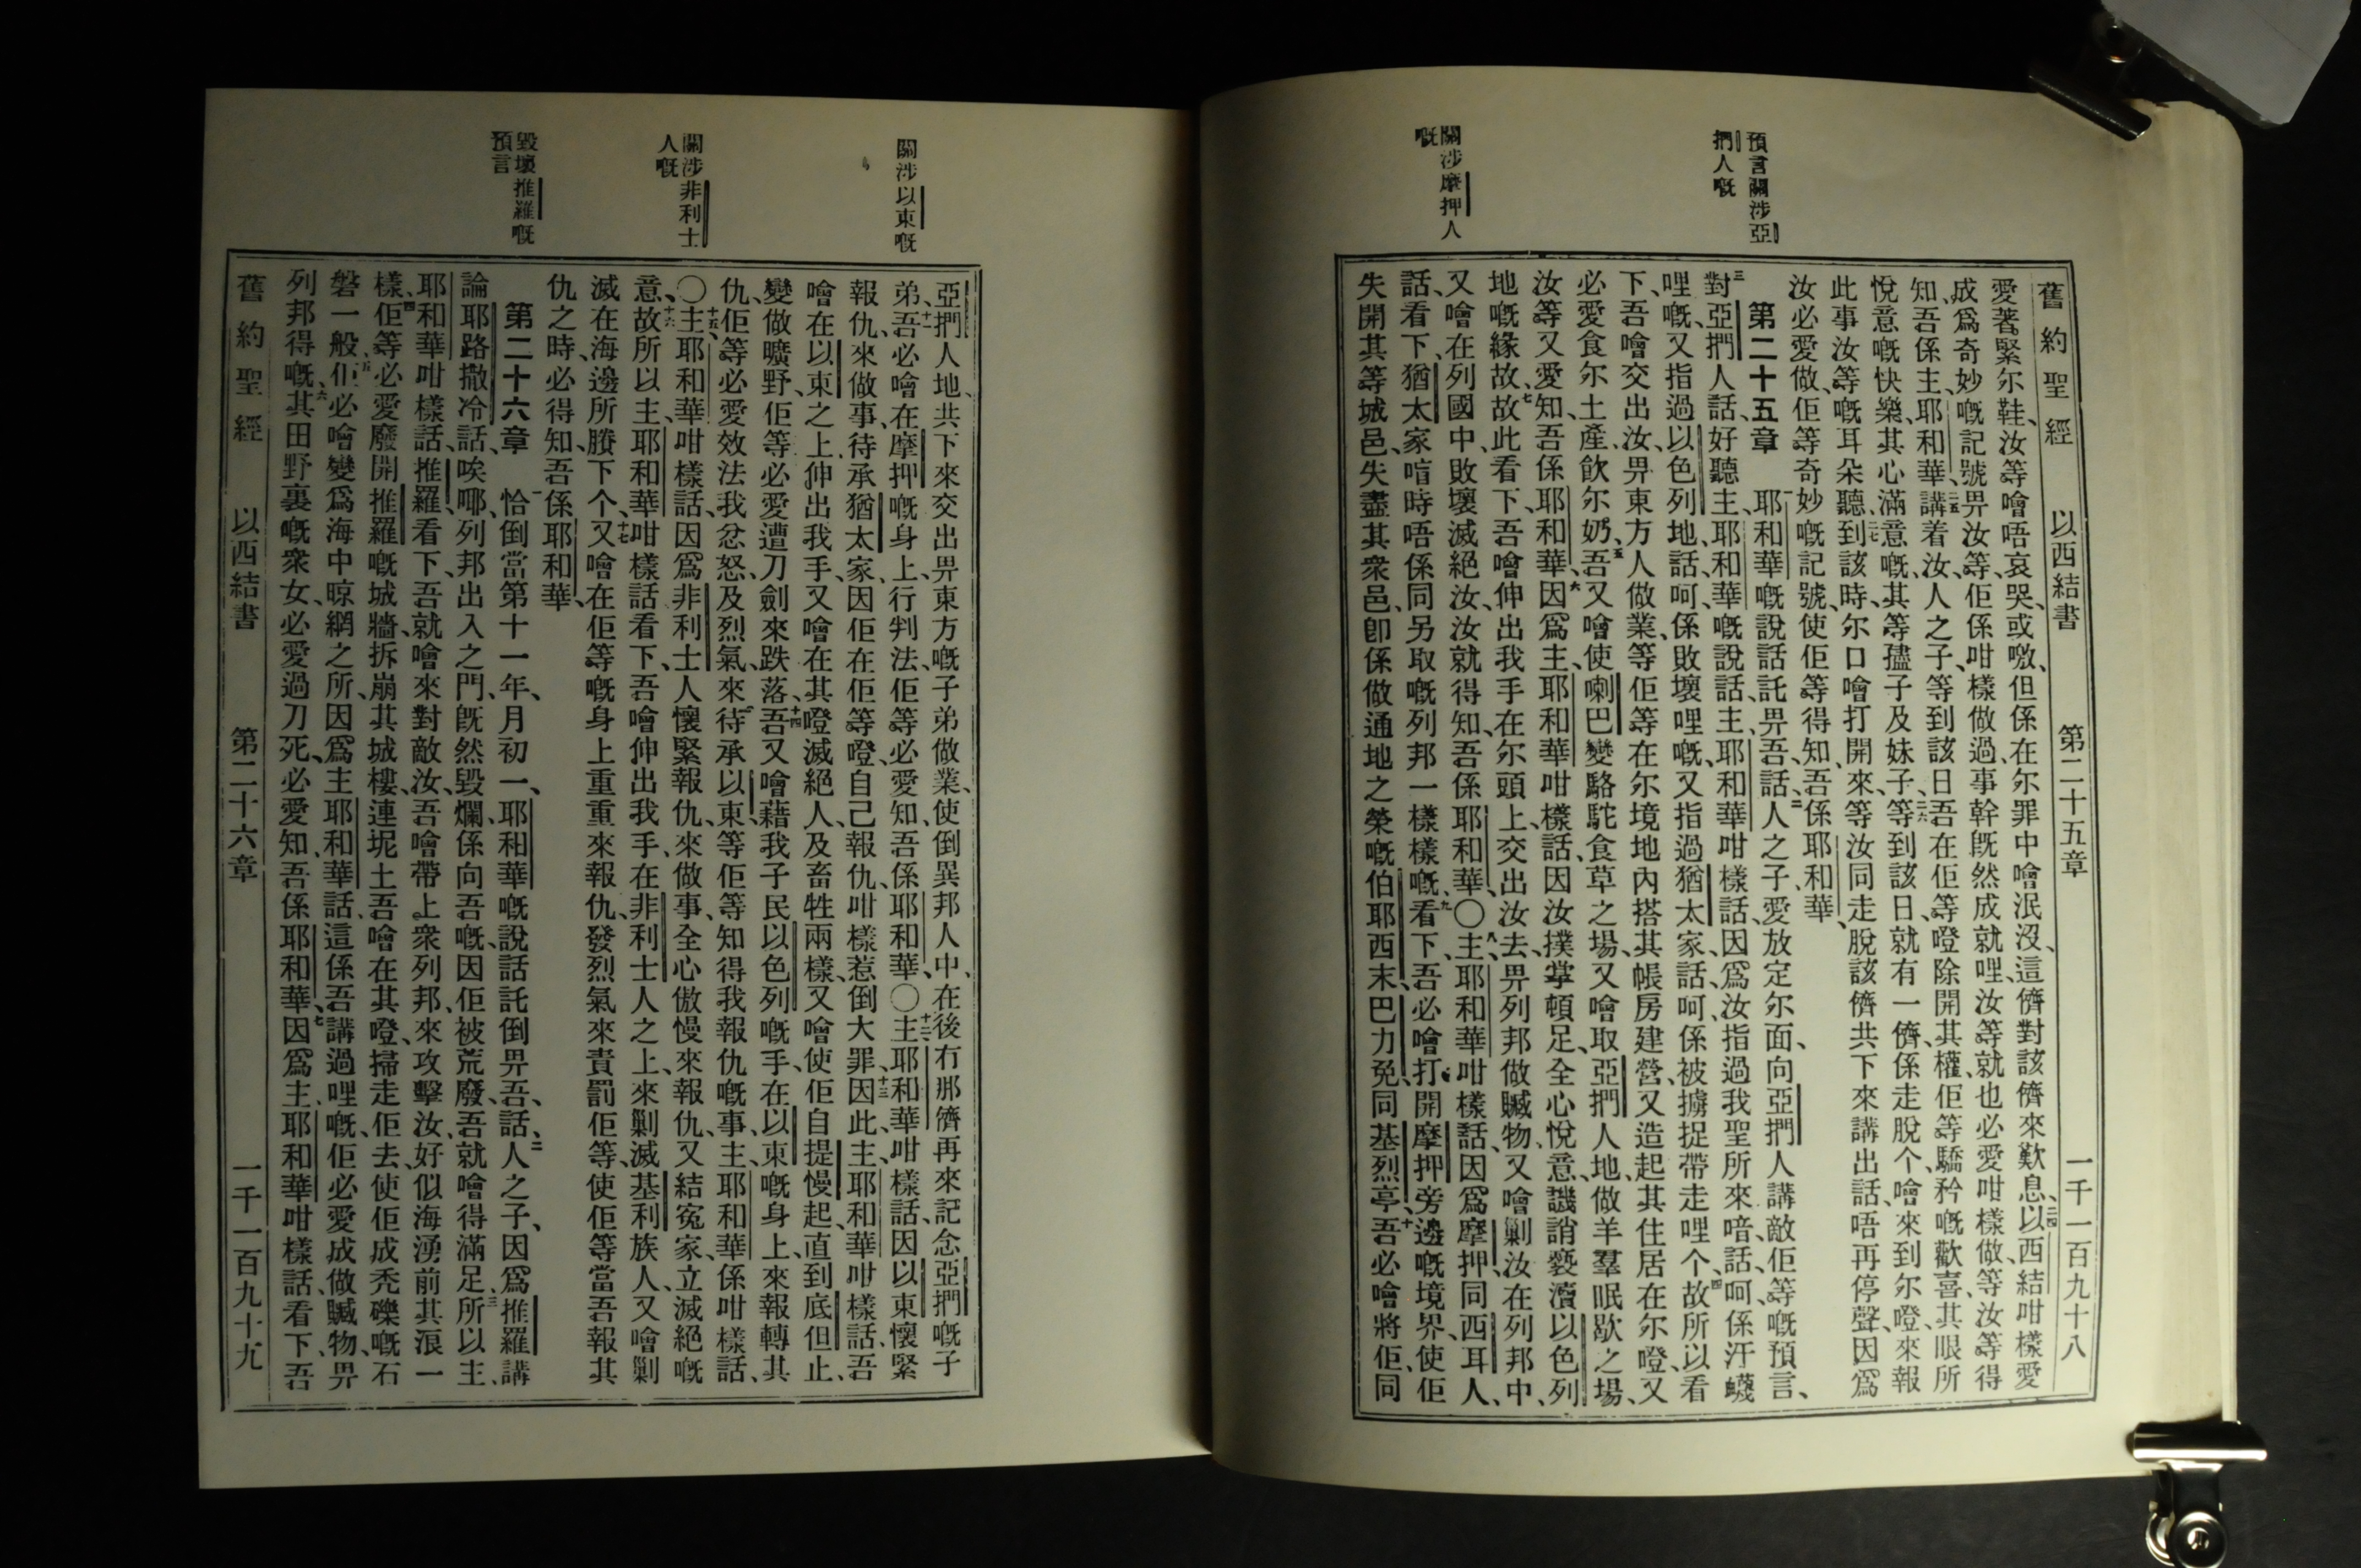 預言關涉亞
捫人嘅
關涉摩押人
嘅
舊約聖經 以西結書 第二十五章 一千一百九十八
愛著緊尔鞋、汝等噲唔哀哭、或噭、但係在尔罪中噲泯沒、這儕對該儕來歎息、二四以西結咁樣愛
成爲奇妙嘅記號畀汝等、佢係咁樣做過事幹既然成就哩、汝等就也必愛咁樣做、等汝等得
知、吾係主、耶和華、二五講着汝、人之子、等到該日吾在佢等噔除開其權、佢等驕矜嘅歡喜、其眼所
悅意嘅快樂、其心滿意嘅、其等孻子及妹子、二六等到該日、就有一儕、係走脫个、噲來到尔噔、來報
此事汝等嘅耳朵聽、二七到該時、尔口噲打開來、等汝同走脫該儕共下來講出話、唔再停聲、因爲
汝必愛做、佢等奇妙嘅記號、使佢等得知、吾係耶和華、
第二十五章 一耶和華嘅說話託畀吾、話、二人之子、愛放定尔面、向亞捫人講敵佢等嘅預言、
三對亞捫人話、好聽主、耶和華嘅說話、主、耶和華咁樣話、因爲汝指過我聖所來喑、話呵、係汙衊
哩嘅、又指過以色列地、話呵、係敗壞哩嘅、又指過猶太家、話呵、係被擄捉帶走哩个、四故所以看
下、吾噲交出汝、畀東方人做業、等佢等在尔境地內搭其帳房建營、又造起其住居在尔噔、又
必愛食尔土產、飲尔奶、五吾又噲使喇巴變駱駝食草之場、又噲取亞捫人地、做羊羣眠歇之場、
汝等又愛知、吾係耶和華、六因爲主、耶和華咁樣話、因汝撲掌頓足、全心悅意、譏誚褻瀆以色列
地嘅緣故、七故此看下、吾噲伸出我手在尔頭上、交出汝去、畀列邦做贓物、又噲剿汝在列邦中、
又噲在列國中、敗壞滅絕汝、汝就得知、吾係耶和華、〇八主、耶和華咁樣話、因爲摩押同西耳人、
話、看下、猶太家喑時唔係同另取嘅列邦一樣樣嘅、九看下、吾必噲打開摩押旁邊嘅境界、使佢
失開其等城邑、失盡其衆邑、卽係做通地之榮嘅伯耶西末、巴力免、同基烈亭、十吾必噲將佢、同
關涉以東嘅
關涉非利士
人嘅
毀壞推羅嘅
預言
亞捫人地、共下來交出畀東方嘅子弟做業、使倒異邦人中、在後冇那儕再來記念亞捫嘅子
弟、十一吾必噲在摩押嘅身上、行判法、佢等必愛知、吾係耶和華、〇十二主、耶和華咁樣話、因以東懷緊
報仇、來做事、待承猶太家、因佢在佢等噔、自己報仇、咁樣惹倒大罪、十三因此、主、耶和華咁樣話、吾
噲在以東之上、伸出我手、又噲在其噔滅絕人、及畜牲兩樣、又噲使佢自提慢起、直到底但止、
變做曠野、佢等必愛遭刀劍來跌落、十四吾又噲藉我子民以色列嘅手、在以東嘅身上、來報轉其
仇、佢等必愛效法我忿怒、及烈氣、來待承以東、等佢等知得我報仇嘅事、主、耶和華係咁樣話、
〇十五主、耶和華咁樣話、因爲非利士人懷緊報仇、來做事、全心傲慢來報仇、又結寃家、立滅絕嘅
意、十六故所以主、耶和華咁樣話看下、吾噲伸出我手、在非利士人之上、來剿滅基利族人、又噲剿
滅在海邊所賸下个、十七又噲在佢等嘅身上重重來報仇、發烈氣來責罰佢等、使佢等當吾報其
仇之時、必得知、吾係耶和華、
第二十六章 一恰倒當第十一年、月初一、耶和華嘅說話託倒畀吾、話、二人之子、因爲推羅講
論耶路撒冷話、唉㖿、列邦出入之門、既然毀爛、係向吾嘅、因佢被荒廢、吾就噲得滿足、三所以主、
耶和華咁樣話、推羅、看下、吾就噲來對敵汝、吾噲帶上衆列邦、來攻擊汝、好似海湧前其浪一
樣、四佢等必愛廢開推羅嘅城牆、拆崩其城樓、連坭土吾噲在其噔、掃走佢去、使佢成禿磔嘅石
磐一般、五佢必噲變爲海中晾網之所、因爲主耶和華話、這係吾講過哩嘅、佢必愛成做贓物、畀
列邦得嘅、六其田野裏嘅衆女、必愛過刀死、必愛知、吾係耶和華、七因爲主、耶和華咁樣話、看下、吾
舊約聖經 以西結書 第二十六章 一千一百九十九